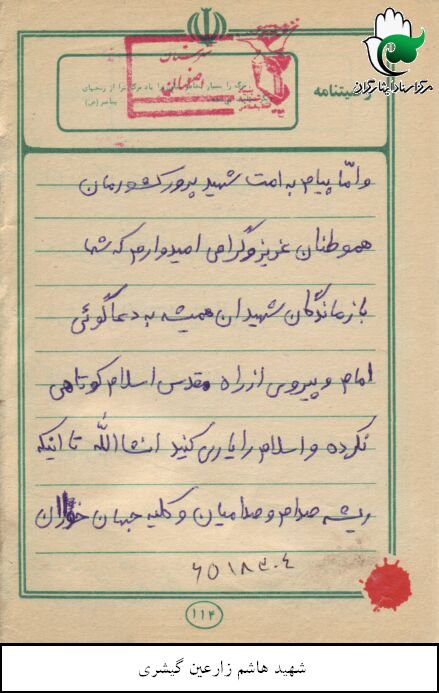 مرکز اسناد ایثارگران
وصیتنامه
شهرستان
اصفهان
مرگ را بسیار
پیامبر (ص)
و امّا پیام به امت شهید پرور کشورمان
هموطنان عزیز و گرامی امیدوارم که شما
بازماندگان شهیدان همیشه به دعاگوئی
امام و پیروی از راه مقدس اسلام کوتاهی
نکرده و اسلام را یاری کنید انشاالله تا اینکه
ریشه صدام و صدامیان و کلیه جهان خواران
۶۵۱۸۳۰۴
۱۱۴
شهید هاشم زارعین گیشری